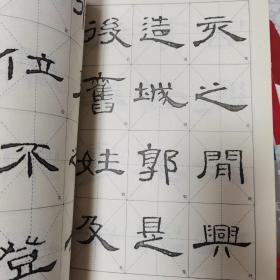 亥之間興
造城郭是
後舊姓及
位不登